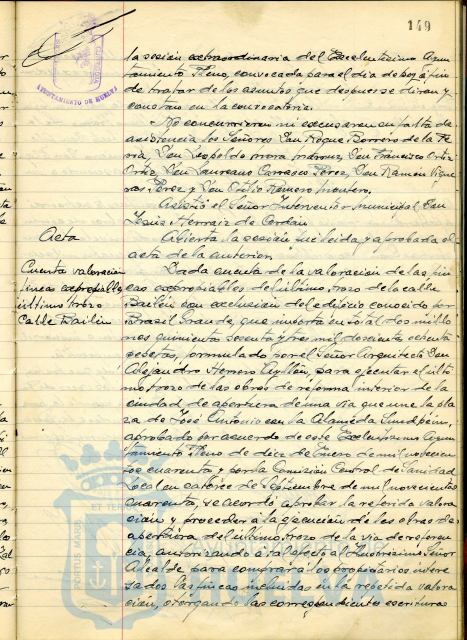 149
AYUNTAMIENTO DE HUELVA
la sesión extraordinaria del Excelentísimo Ayun
tamiento Pleno, convocada para el día de hoy á fin
de tratar de los asuntos que después se dirán y
constan en la convocatoria.
No concurrieron ni excusaron su falta de
asistencia los Señores Don Roque Borrero de la Fe
ria, Don Leopoldo Don Francisco Ortiz
Ortiz, Don Laureano Carrasco Pérez, Don Ramón Vigue
ras Pérez y Don Ovidio Romero Montero.
Asistió el Señor Interventor Municipal Don
Jesús Herraiz de Cordán
Acta
Abierta la sesión fué leida y aprobada el
acta de la anterior.
Cuenta valoración
fincas expropiables
último trozo
Calle Bailén
Dada cuenta de la valoración de las fin
cas expropiables del último trozo de la calle
Bailén con exclusión del edificio conocido por
Brasil Grande, que importa en total dos millo
nes quinientas sesenta y tres mil doscientas ochenta
pesetas, formulado por el Señor Arquitecto Don
Alejandro Herrero Ayllón, para ejecutar el últi
mo trozo de las obras de reforma interior de la
ciudad de apertura de una vía que une la pla
za de José Antonio con la Alameda Sundheim,
aprobado por acuerdo de este Excelentísimo Ayun
tamiento Pleno de diez de Enero de mil novecien
tos cuarenta y por la Comisión Central de Sanidad
Local en catorce de Septiembre de mil novecientos
cuarenta, se acordó aprobar la referida valora
ción y proceder a la ejecución de las obras de
apertura del último trozo de la vía de referen
cia, autorizando a tal efecto al Ilustrísimo Señor
Alcalde para comprar á los propietarios intere
sados las fincas incluidas en la repetida valora
ción, otorgando las correspondientes escrituras
PORTUS MARIS
ET TERRAE